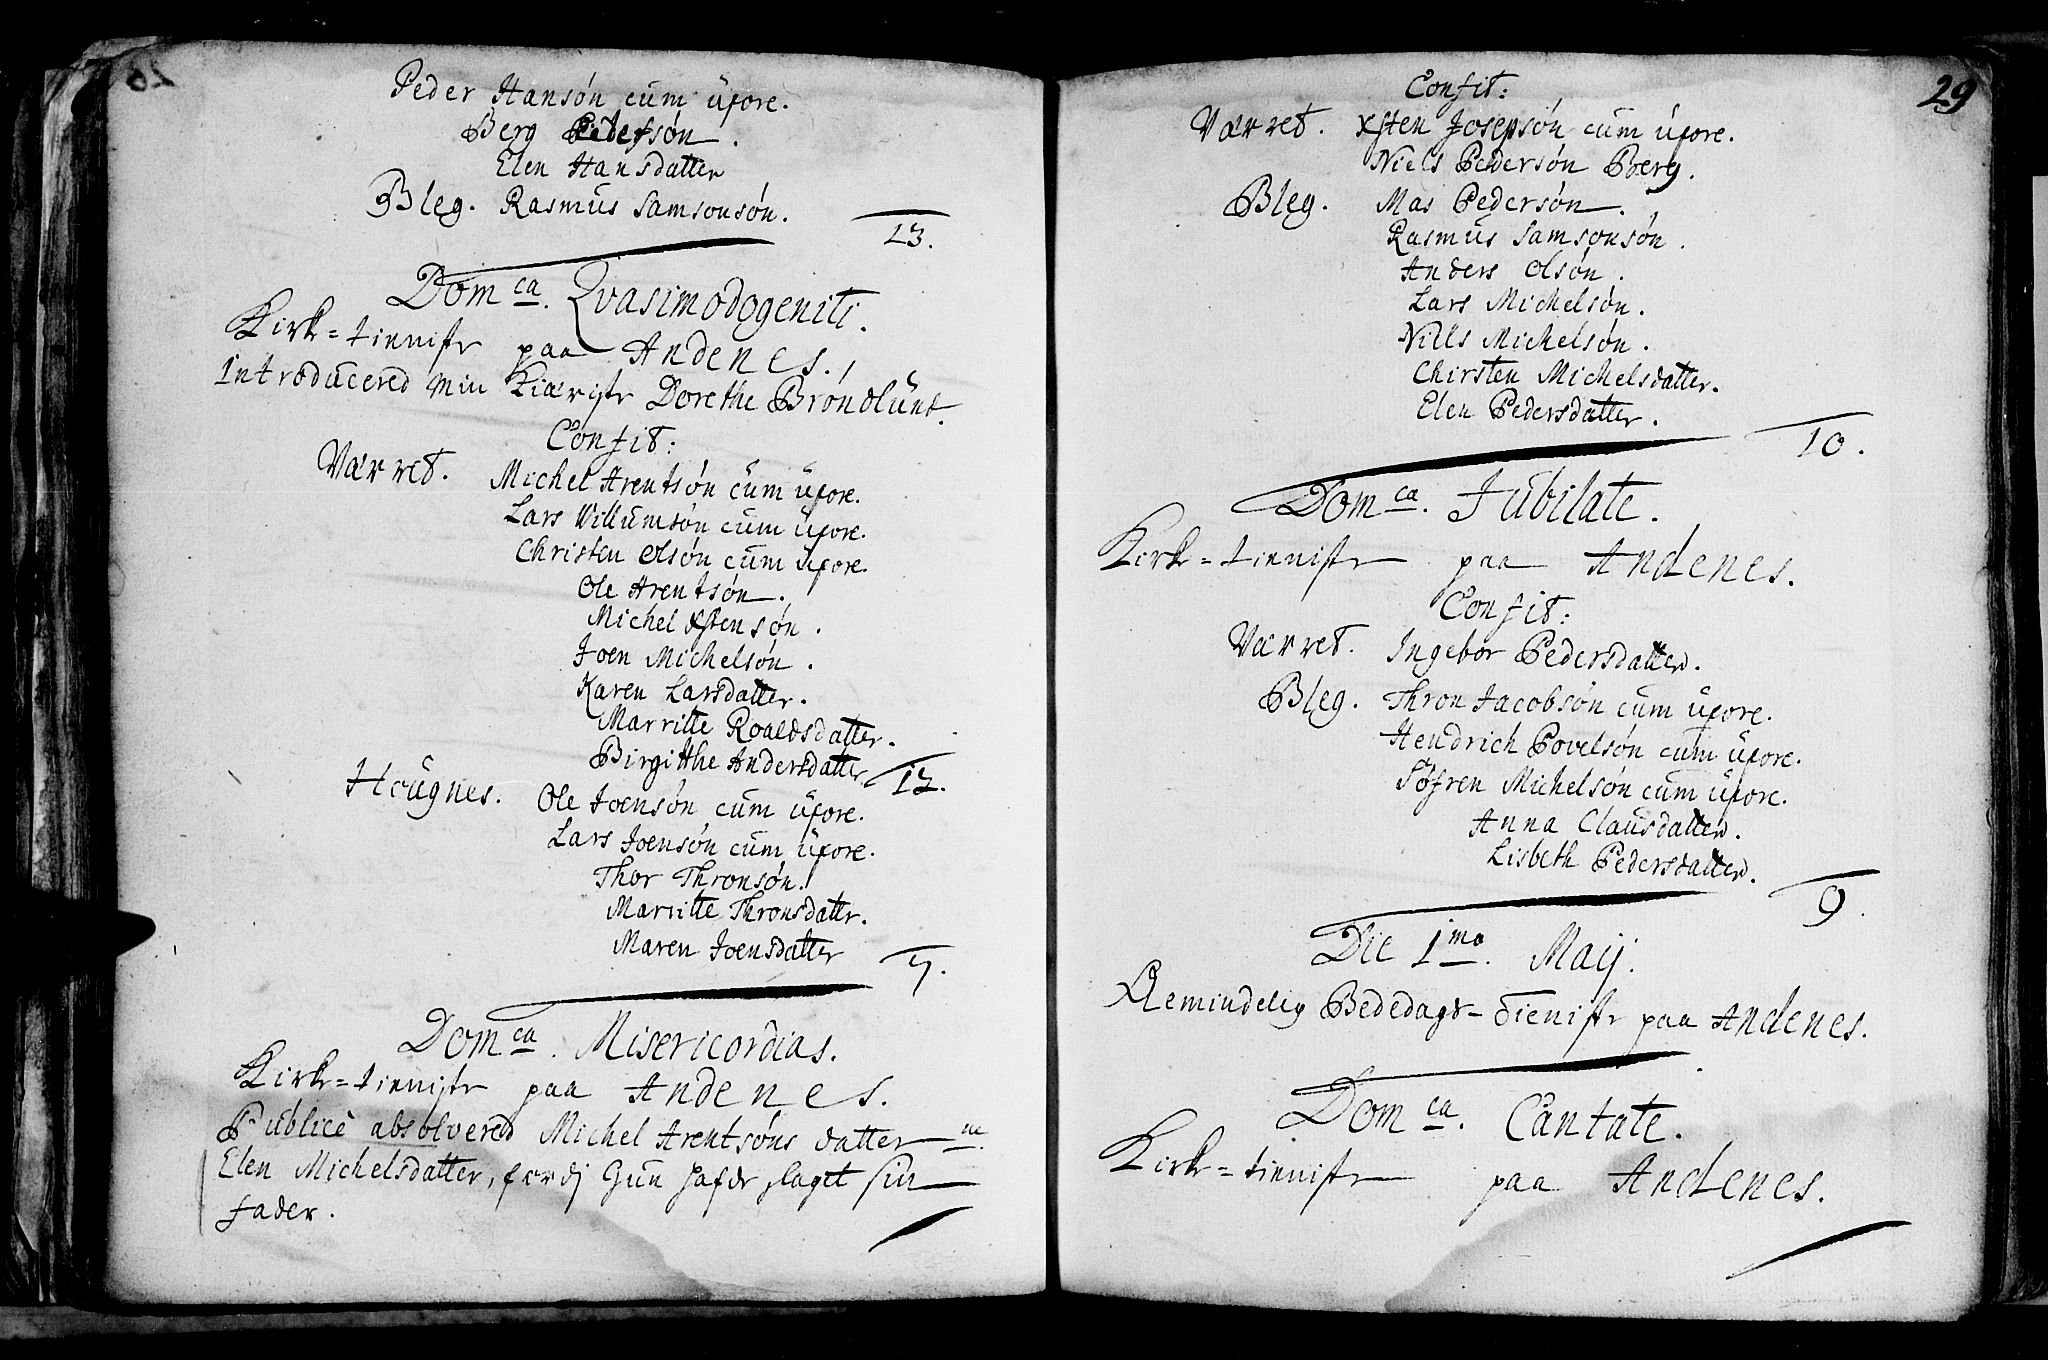 Peder Hansøn cum uxore.
Berg Pedersøn.
Elen Hansdatter
Bleg. Rasmus Samsonsøn.
13.
Dom ca. Qvasimodogeniti.
Kirke=tieniste paa Andenes.
Introducered min Kiæriste Dorethe Brøndlund.
Confit:
Værret. Michel Arentsøn cum uxore.
Lars Willumsøn cum uxore.
Christen Olsøn cum uxore.
Ole Arentsøn.
Michel Xstensøn.
Joen Michelsøn.
Karen Larsdatter.
Marritte Roaldsdatter.
Birgitthe Andersdatter
12.
Hougnes. Ole Joensøn cum uxore.
Lars Joensøn cum uxore.
Thor Thronsøn.
Marritte Thronsdatter.
Maren Joensdatter
7.
Dom ca. Misericordias.
Kirke=tieniste paa Andenes.
Publicè absolvered Michel Arentsøns datter
Elen Michelsdatter, fordj hun hafde slaget sin
fader.
29
Confit:
Værret. Xsten Josepsøn cum uxore.
Niels Pedersøn Berg.
Bleg. Mas Pedersøn.
Rasmus Samsonsøn.
Anders Olsøn.
Lars Michelsøn.
Nills Michelsøn.
Chirsten Michelsdatter.
Elen Pedersdatter.
10.
Dom ca. Jubilate.
Kirke=tieniste paa Andenes.
Confit:
Værret. Ingebor Pedersdatter.
Bleg. Thron Jacobsøn cum uxore.
Hendrich Povelsøn cum uxore.
Søfren Michelsøn cum uxore.
Anna Clausdatter.
Lisbeth Pedersdatter.
9.
Die 1 ma. Maij.
Almindelig Bededags=dieniste paa Andenes.
Dom ca. Cantate.
Kirke=tieniste paa Andenes.